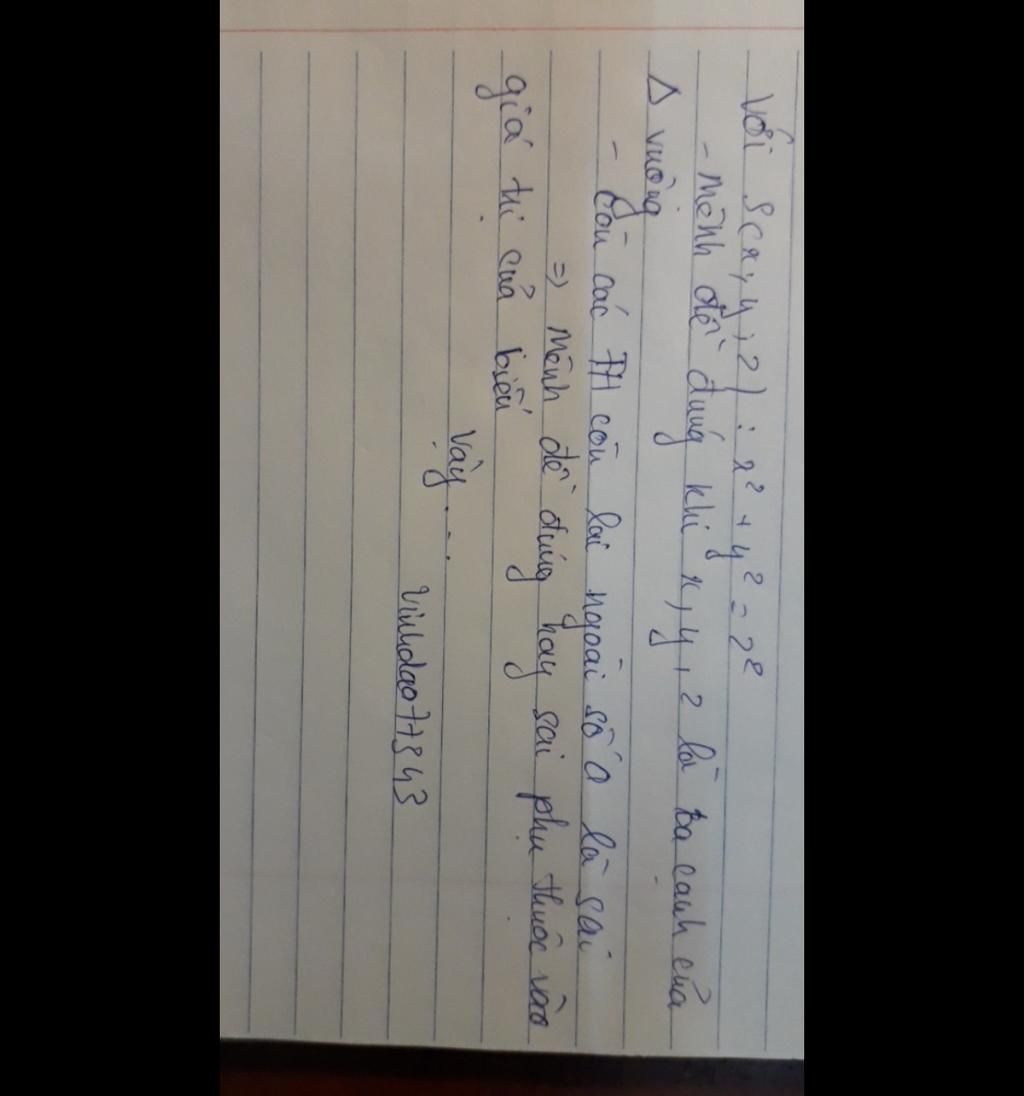 Với S(x, y, z) : x² + y² = z²
- Mệnh đề đúng khi x, y, z là ba cạnh của
Δ vuông
- Còn các TH còn lại ngoài số 0 là sai
=> Mệnh đề đúng hay sai phụ thuộc vào
giá trị của biến
Vậy ...
Vinhdao77343